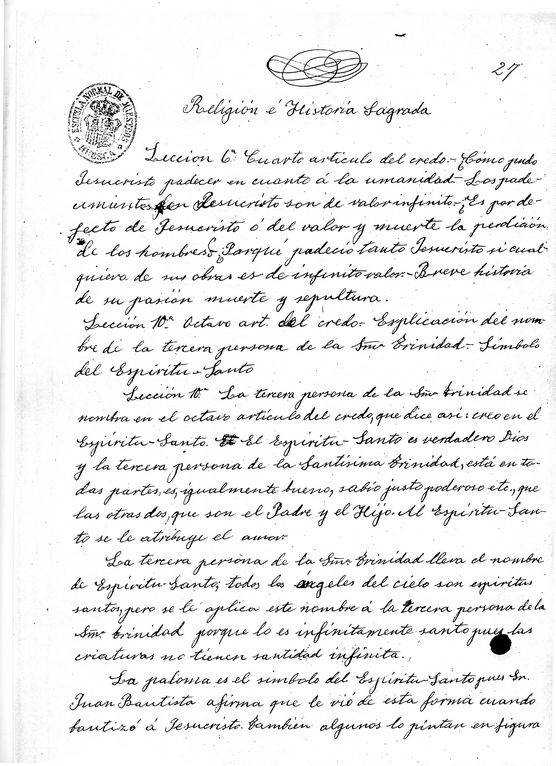 27
ESCUELA NORMAL DE MAESTROS
HUESCA
Religión é Historia Sagrada
Leccion 6ª Cuarto artículo del credo.- ¿Cómo pudo
Jesucristo padecer en cuanto á la umanidad- Los pade-
cimientos en Jesucristo son de valor infinito.- ¿Es por de-
fecto de Jesucristo ó del valor y muerte la perdición
de los hombres?- ¿Porqué padeció tanto Jesucristo si cual-
quiera de sus obras es de infinito valor.- Breve historia
de su pasión muerte y sepultura.
Lección 10.ª Octavo art. del credo- Esplicación del nom-
bre de la tercera persona de la Sma Trinidad.- Símbolo
del Espíritu-Santo
Lección 10ª La tercera persona de la Sma Trinidad se
nombra en el octavo artículo del credo, que dice asi: creo en el
Espíritu-Santo. El Espíritu-Santo es verdadero Dios
y la tercera persona de la Santísima Trinidad, está en to-
das partes, es, igualmente bueno, sabio justo poderoso etc., que
las otras dos, que son el Padre y el Hijo. Al Espíritu-San-
to se le atribuye el amor.
La tercera persona de la Sma Trinidad lleva el nombre
de Espíritu-Santo; todos los ángeles del cielo son espíritus
santos, pero se le aplica este nombre á la tercera persona de la
Sma Trinidad porque lo es infinitamente santo pues las
criaturas no tienen santidad infinita.
La paloma es el símbolo del Espíritu-Santo pues Sn.
Juan Bautista afirma que le vió de esta forma cuando
bautizó á Jesucristo. También algunos lo pintan en figura